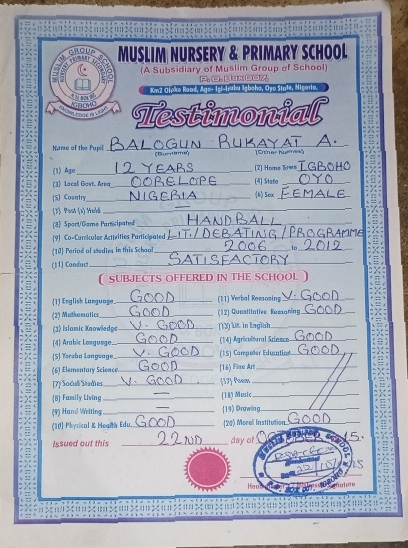 MUSLIM NURSERY & PRIMARY SCHOOL
(A Subsidiary of Muslim Group of School)
P. O. Box 007,
Km2 Oloko Road, Aga- Igbohoo, Oyo State, Nigeria.
MUSLIM GROUP SCHOOL
NURSERY PRIMARY
IGBOHO
KNOWLEDGE IS LIGHT
Testimonial
Name of the Pupil BALOGUN RUKAYAT A.
(Surname) (Other Names)
(1) Age 12 YEARS (2) Home Town IGBOHO
(3) Local Govt. Area OORELOPE (4) State OYO
(5) Country NIGERIA (6) Sex FEMALE
(7) Post (s) Held —
(8) Sport/Game Participated HANDBALL
(9) Co-Curricular Activities Participated LIT./DEBATING/PROGRAMME
(10) Period of studies in this School 2006 to 2012
(11) Conduct SATISFACTORY
(SUBJECTS OFFERED IN THE SCHOOL)
(1) English Language GOOD (11) Verbal Reasoning V. GOOD
(2) Mathematics GOOD (12) Quantitative Reasoning GOOD
(3) Islamic Knowledge V. GOOD (13) Lit. in English
(4) Arabic Language GOOD (14) Agricultural Science GOOD
(5) Yoruba Language V. GOOD (15) Computer Education GOOD
(6) Elementary Science GOOD (16) Fine Art
(7) Social Studies V. GOOD (17) Poem
(8) Family Living — (18) Music
(9) Hand Writing — (19) Drawing
(10) Physical & Health Edu. GOOD (20) Moral Institution GOOD
Issued out this 22ND day of 15.